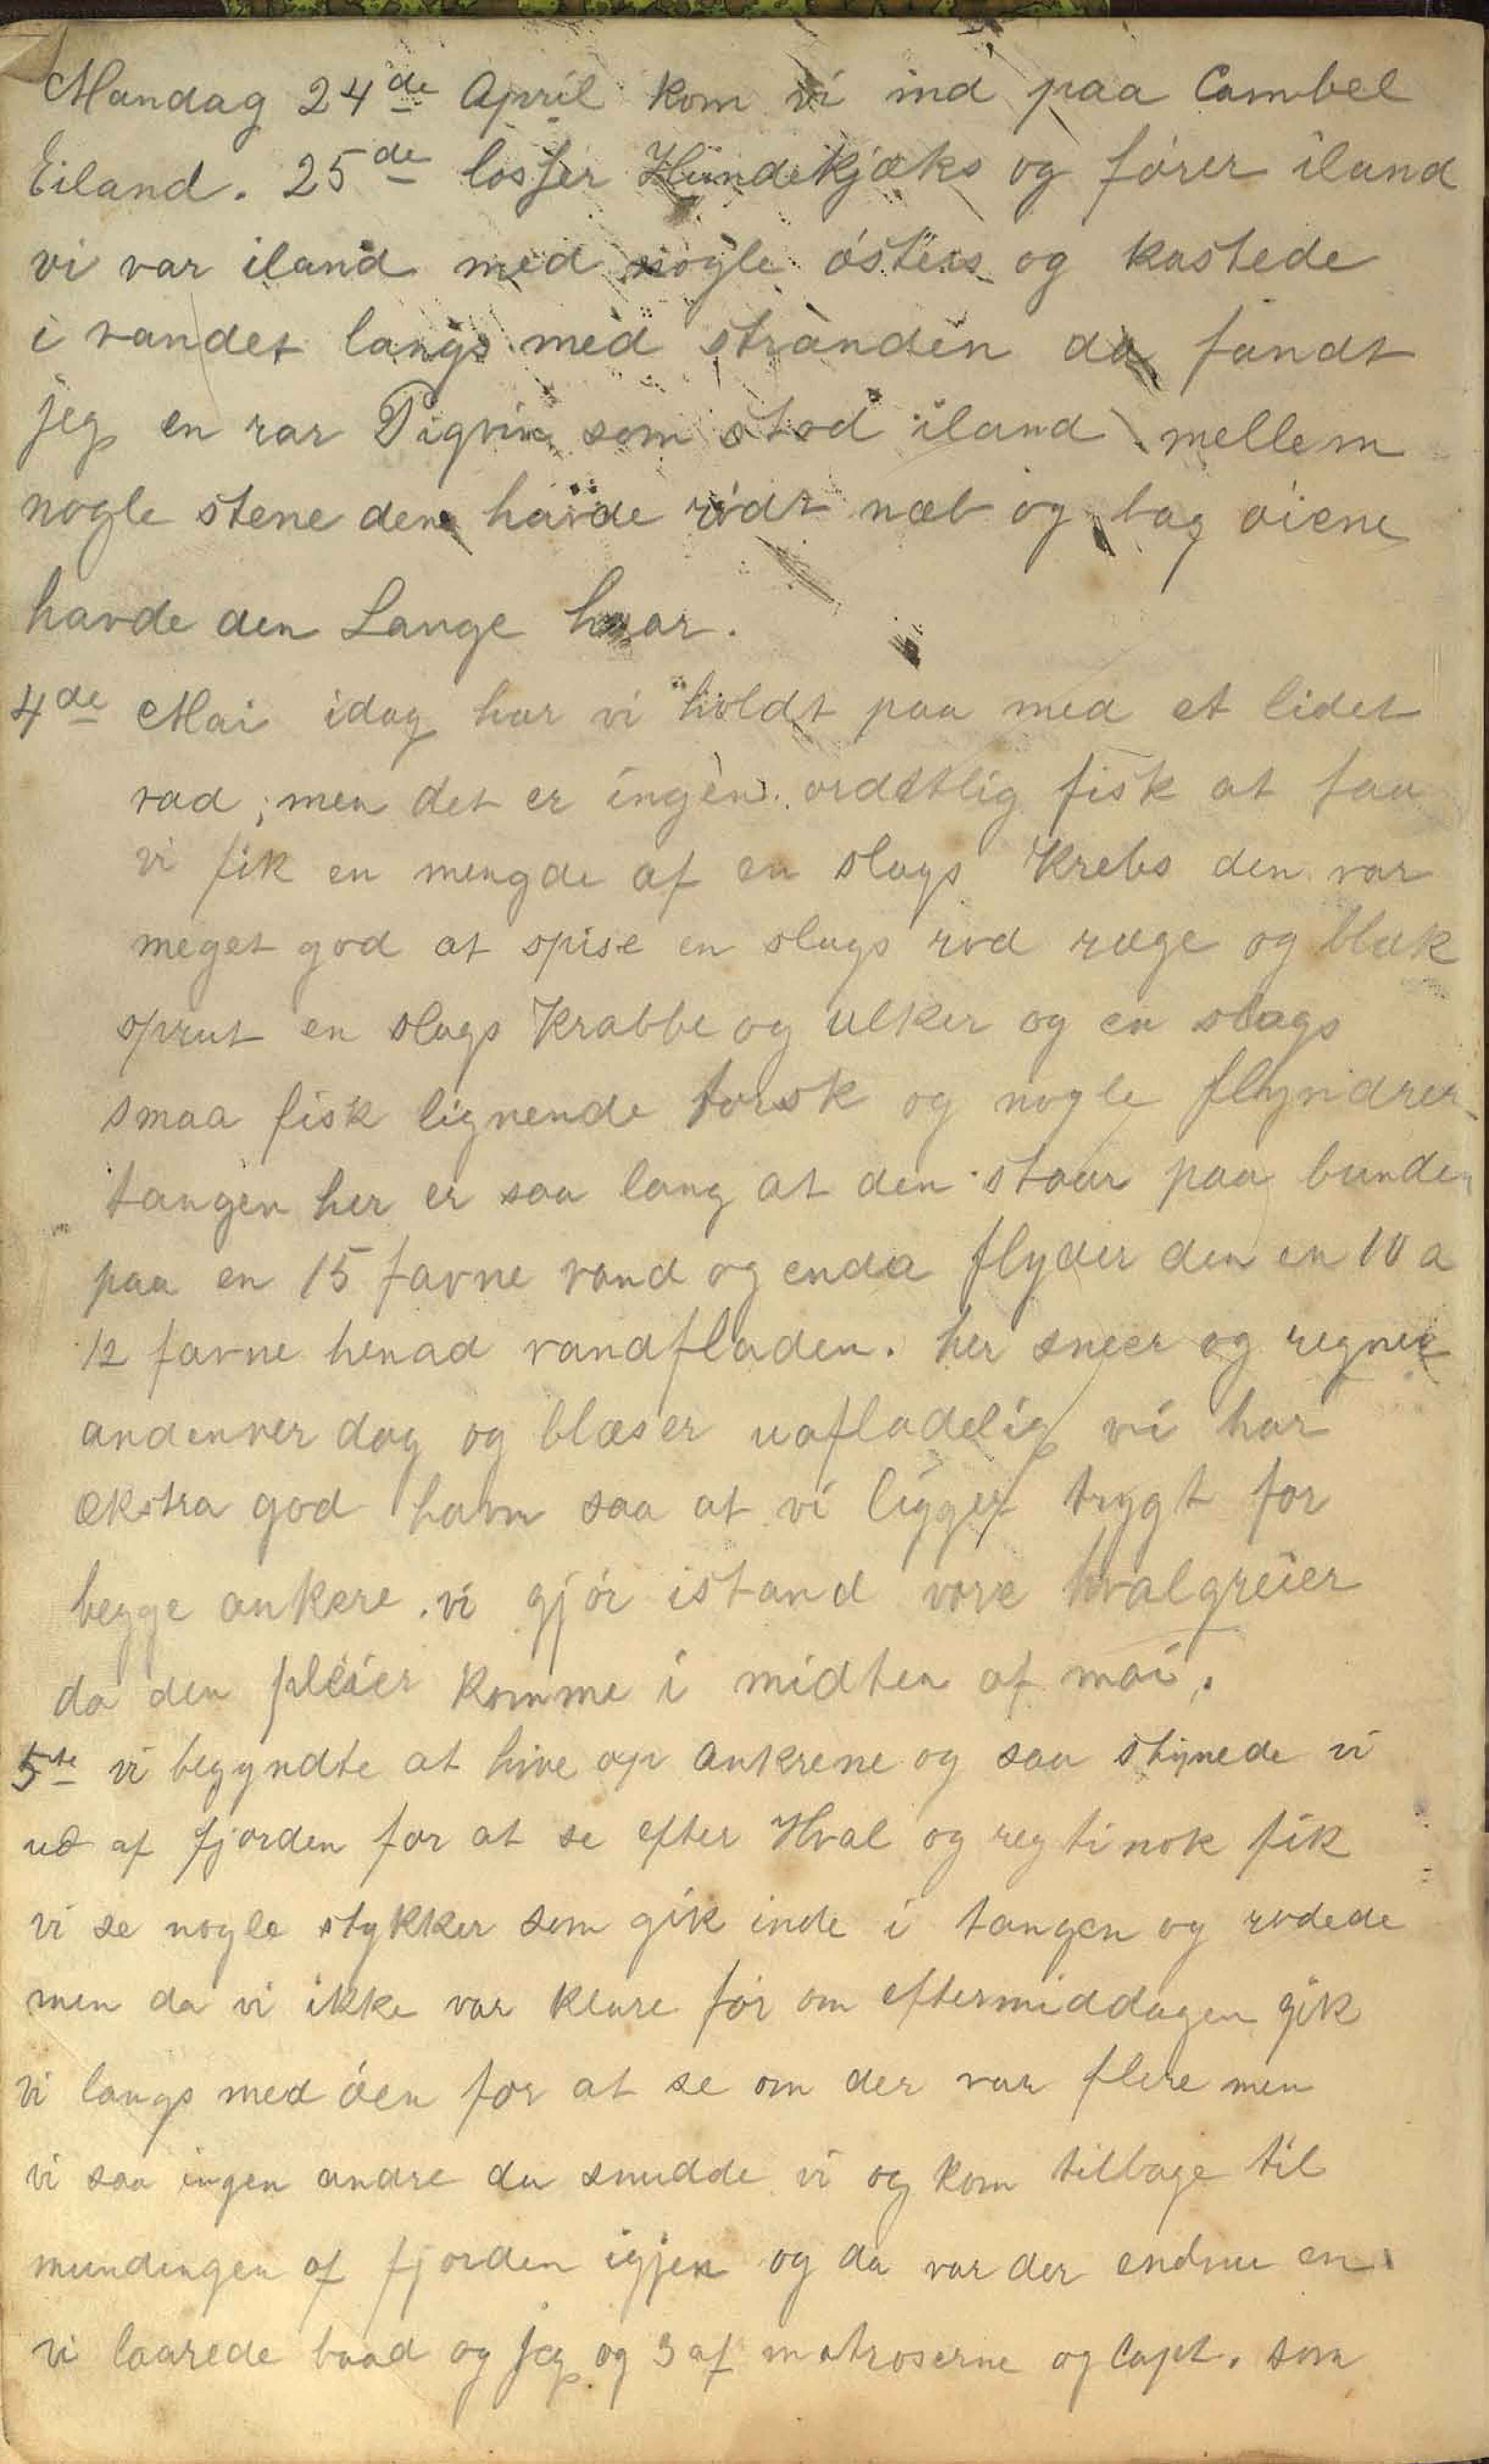 Mandag 24de April kom vi ind paa Cambel
Eiland. 25de losser Hundekjæks og fører iland
vi var iland med nogle østers og kastede
i vandet langs med stranden da fandt
jeg en rar Pigvin som stod iland mellem
nogle stene den havde rødt næb og bag øiene
havde den Lange haar.
4de Mai idag har vi holdt paa med et lidet
vad, men det er ingen ordetlig fisk at faa
vi fik en mengde af en slags Krebs den var
meget god at spise en slags rød ræge og blæk
sprut en slags Krabbe og ulker og en slags
smaa fisk lignende torsk og nogle flyndrer
tangen her er saa lang at den staar paa bunden
paa en 15 favne vand og enda flyder den en 10 a
12 favne henad vandfladen. her sneer og regner
andenver dag og blæser uafladelig vi har
ekstra god havn saa at vi ligger trygt for
begge ankere. vi gjør istand vore hvalgreier
da den pleier komme i midten af mai.
5te vi begyndte at hive op ankrene og saa stynede vi
ud af fjorden for at se efter Hval og regtinok fik
vi se nogle stykker som gik inde i tangen og rodede
men da vi ikke var klare før om eftermiddagen gik
vi langs med øen for at se om der var flere men
vi saa ingen andre da snudde vi og kom tilbage til
mundingen af fjorden igjen og da var der endnu en.
vi laarede baad og jeg og 3 af matroserne og Capt. som